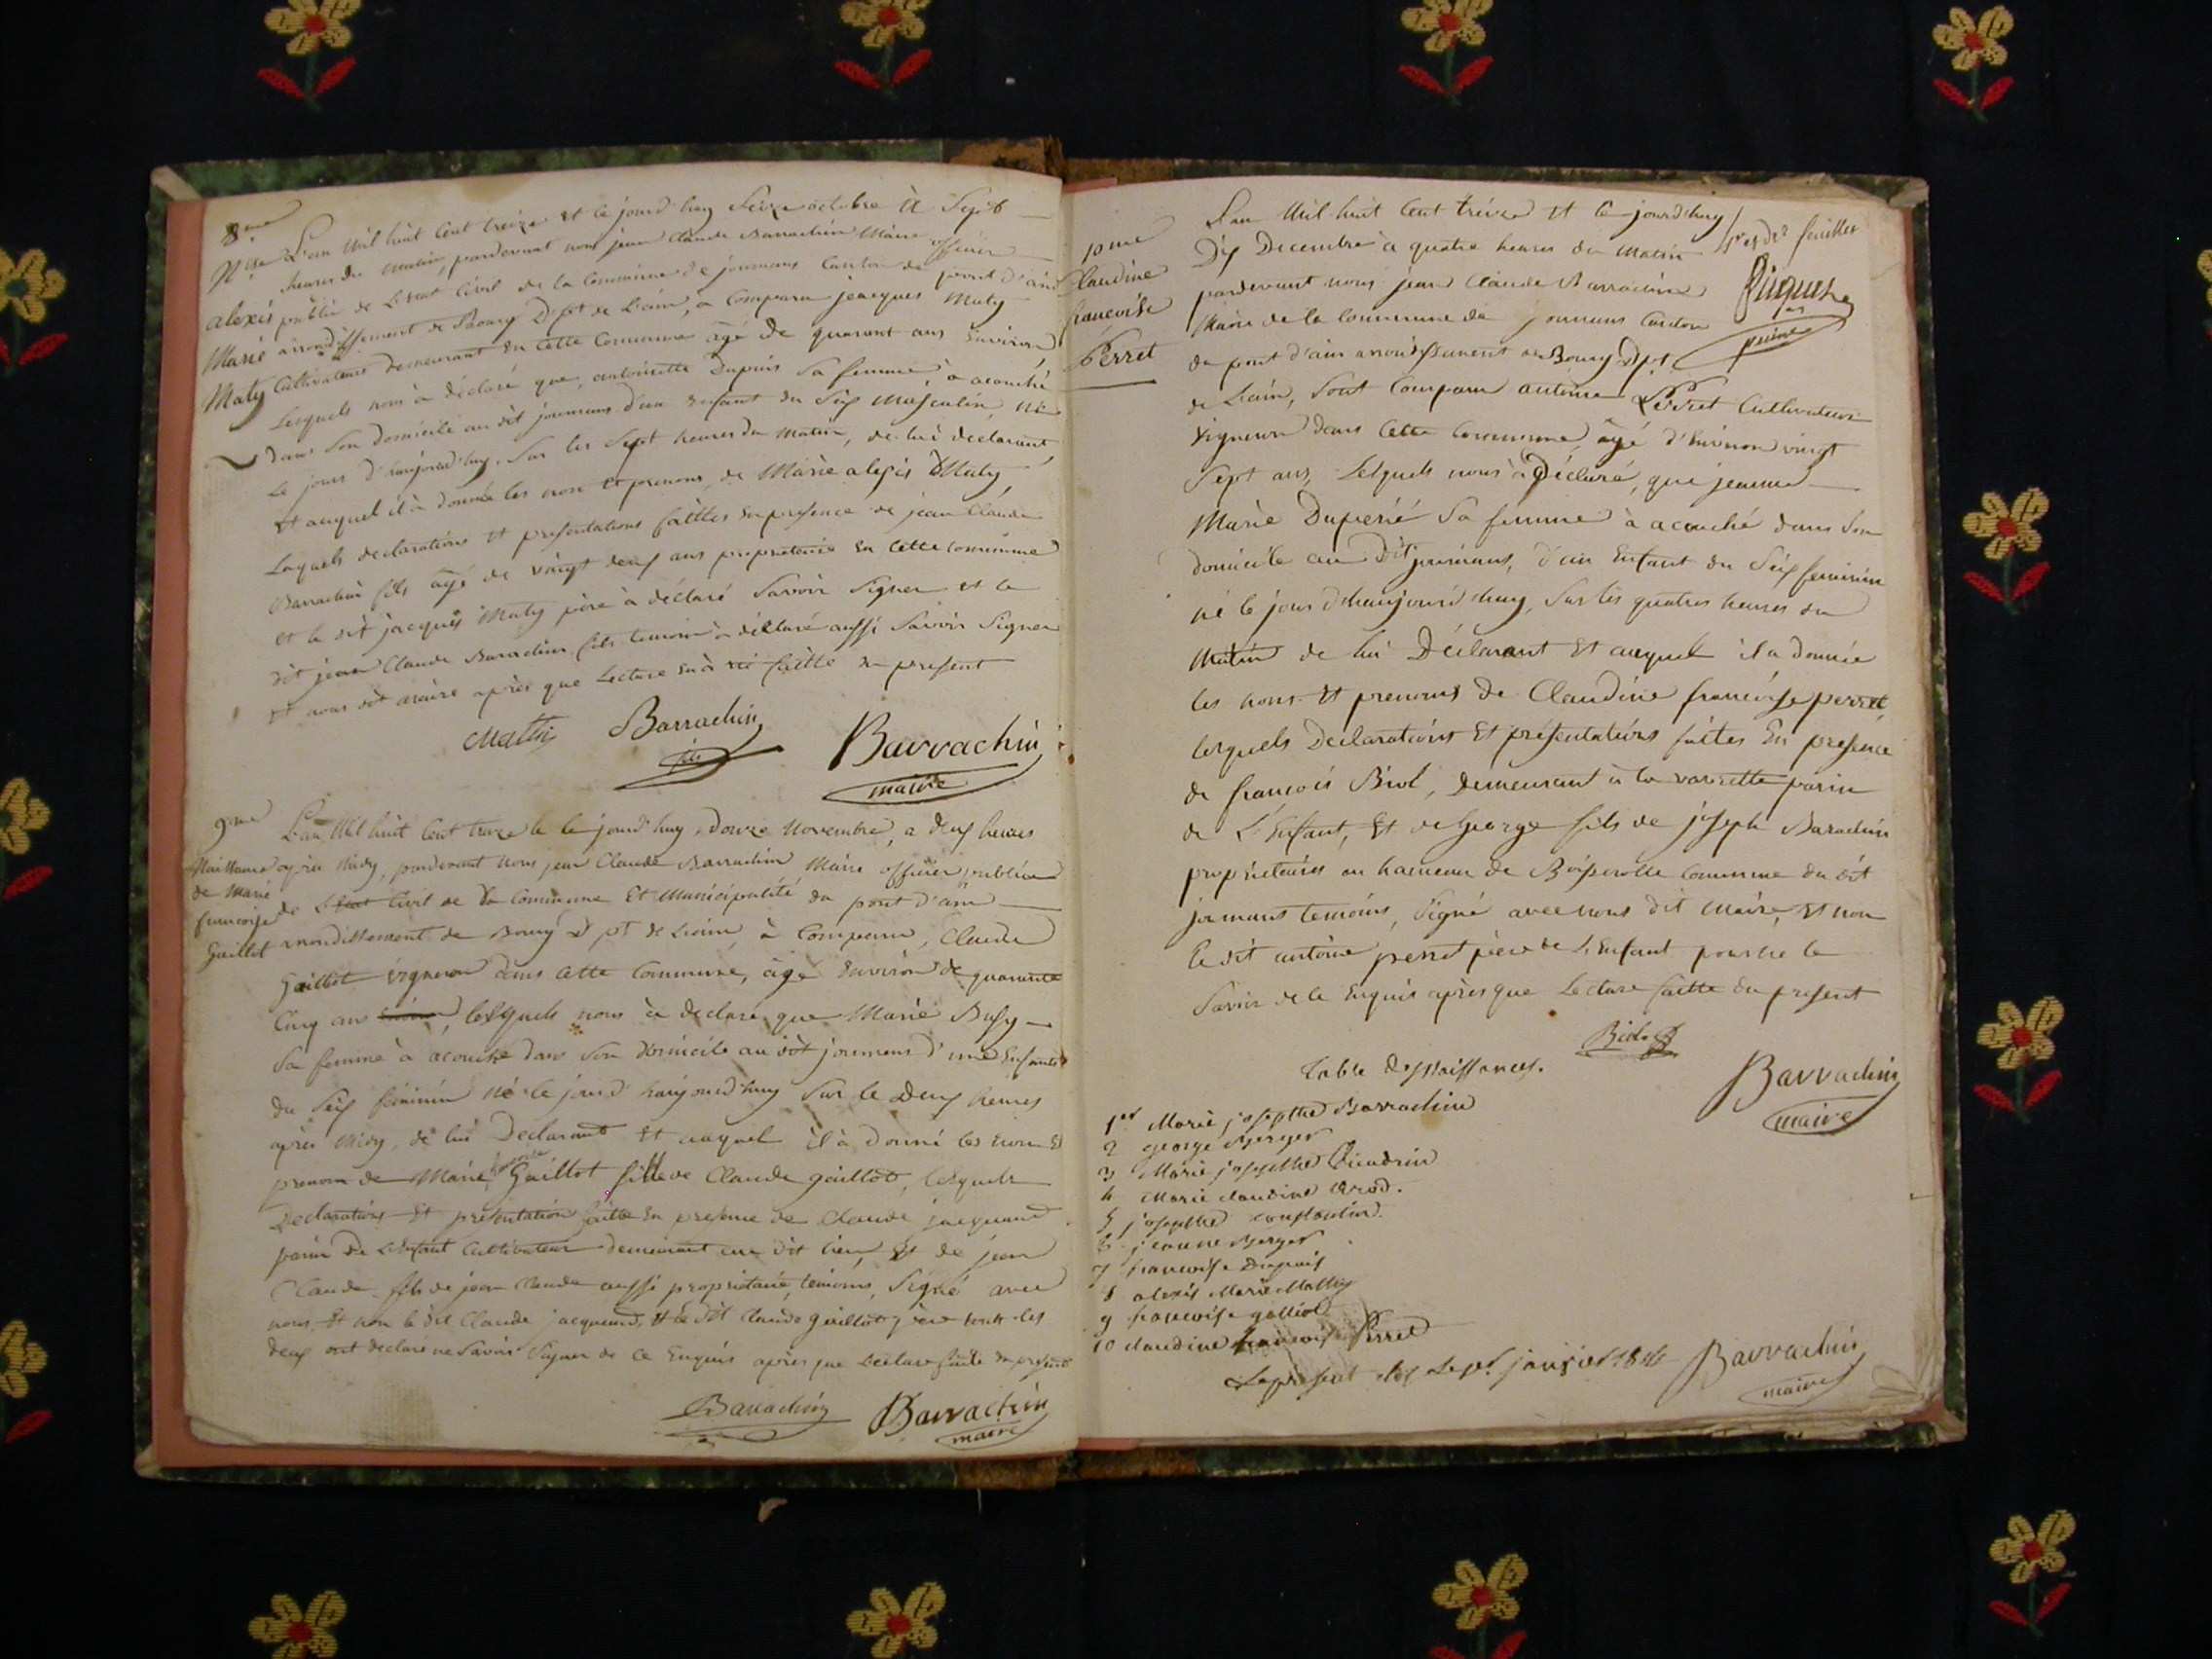 8.me
N.ce
alexis
Marie
Maty
L'an Mil huit Cent treize et le jourd'huy Seize octobre à Sept
heures du matin, pardevant nous jean Claude Barrachin Maire officier
public de L'etat Civil de la Commune de journans Canton de pont d'ain
arrondissement de Bourg Dpt de L'ain, a Comparu jeacques Maty
Cultivateur demeurant en Cette Commune âgé de quarant ans Environ
Lesquels nous à déclaré que, antoinette Dupuis Sa femme, à acouché
dans Son domicile au dit journans d'un enfant du Seix Masculin né
Le jour d'haujourd'huy, Sur les Sept heures du Matin, de lui déclarant,
Et auquel il à donnée les nom et prenoms, de Marie alexis Maty,
Laquels declarations et presentations faittes en presence de jean Claude
Barrachin fils âgé de vingt deux ans proprietaire en Cette Commune
et le dit jacques Maty père à déclaré Savoir Signer et le
dit jean Claude Barrachin fils temoin à déclaré aussi Savoir Signer
et nous dit maire après que Lecture en à été faitte du present
Matti Barrachin fils Barrachin maire
9.me
Naissance
de Marie
francoise
Gaillot
L'an Mil huit Cent treize le le jourd'huy, douze Novembre, a deux heures
après Midy, pardevant nous jean Claude Barrachin Maire officier public
de L'Etat Civil de la Commune Et Municipalité du pont d'ain
arrondissement de Bourg Dpt de L'ain à Comparu, Claude
Gaillot vigneron dans Cette Commune, âgé Environ de quarante
Cinq ans, lesquels nous à declare que Marie Busy
Sa femme à acouché dans Son domicile au dit journans d'une Enfants
du Seix féminin né le jourd'haujourd'huy Sur le Deux heures
après Midy, de lui Declarant Et auquel il à donné les nom Et
prenom de Marie francoise Gaillot fille de Claude gaillot, lesquels
Declarations Et présentation faitte En presence de Claude jacquand
parin de L'enfant Cultivateur demeurant au dit lieu, Et de jean
Claude fils de jean Claude aussi proprietaire, temoins, Signé avec
nous, Et non le dit Claude jacquand, Et le dit Claude gaillot père tous les
deux ont declaré ne Savoir Signer de Ce Enquis après que Lecture faite du present
Barrachin Barrachin maire
10.me
Claudine
francoise
Perret
L'an Mil huit Cent treize et le jourd'huy
Dix Decembre à quatre heures du Matin
pardevant nous jean Claude Barrachin
Maire de la Commune de journans Canton
de pont d'ain arrondissement de Bourg Dpt
de L'ain, Sont Comparu antoine Perret Cultivateur
vigneron dans Cette Commune, âgé d'Environ vingt
Sept ans, Lesquels nous à Déclaré, que jeanne
Marie Duperié Sa femme à acouché dans Son
domicile au Dit journans, d'un Enfant du Seix feminin
né le jour d'haujourd'huy, Sur les quatres heures du
Matin de lui Déclarant Et auquel il a donnée
les noms Et prenoms de Claudine francoise perret,
lesquels Declarations Et présentations faites En presence
de francois Biol, demeurant à la varirette parin
de L'Enfant, Et de George fils de joseph Barachin
proprietaires au hameau de Boiserolle Commune du dit
jornans temoins, Signé avec nous dit Maire, Et non
le dit antoine perret père de L'Enfant pour ne le
Savoir de Ce Enquis après que Lecture faitte du present
Biol
Barrachin
maire
Table des Naissances.
1er Marie josepthe Barrachin
2 george Berger
3 Marie josepthe
4 Marie claudine Brod.
5 josepthe constantin
6 jeanne Berger
7 francoise Dupuis
8 alexis Marie Matty
9 francoise galliot
10 claudine francoise Perret
Le present clos Le pr. janvier 1814
Barrachin
maire